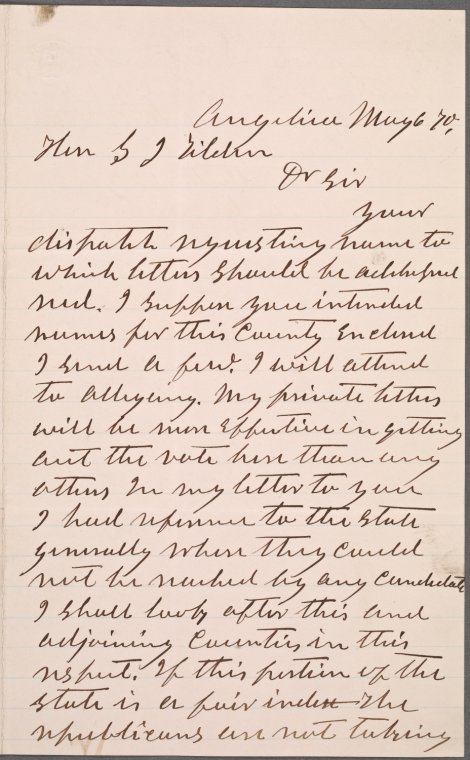 Angelica May 6 70,
Hon S J Tilden
Dr Sir
your
dispatch requesting name to
which letters should be addressed
recd. I suppose you intended
names for this County Enclosed
I send a few. I will attend
to Allegany. My private letters
will be more effective in getting
out the vote here than any
others In my letter to you
I had reference to the State
generally where they could
not be reached by any candidate
I shall look after this and
adjoining Counties in this
respect. If this portion of the
State is a fair index the
republicans are not taking